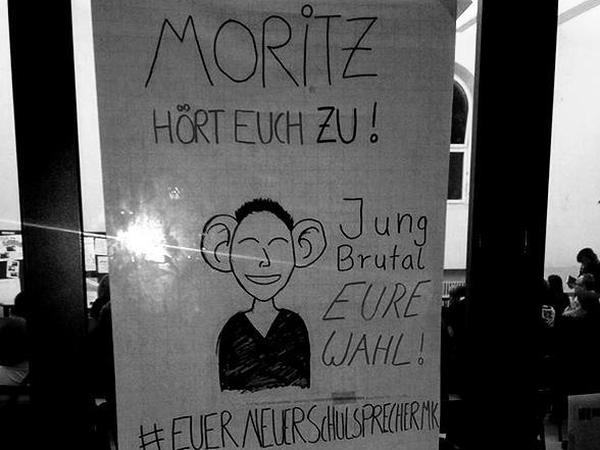 MORITZ
HÖRT EUCH ZU!
Jung
Brutal
EURE
WAHL!
#EUER NEUER SCHULSPRECHER MK